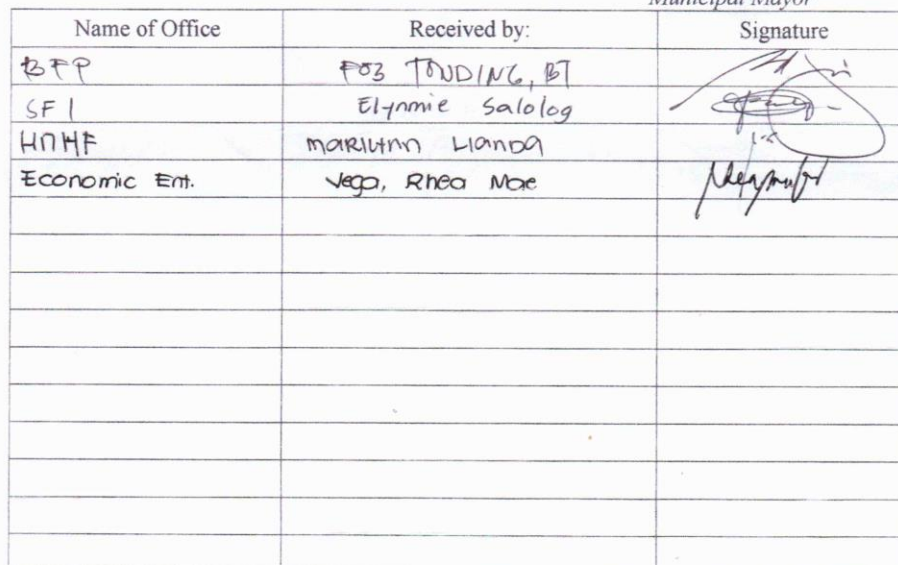 Municipal Mayor
Name of Office Received by: Signature
BFP FO3 TONDING, BT
SFI Elynmie Salolog
HMHF MARILYNN LIANDA
Economic Ent. Vega, Rhea Mae